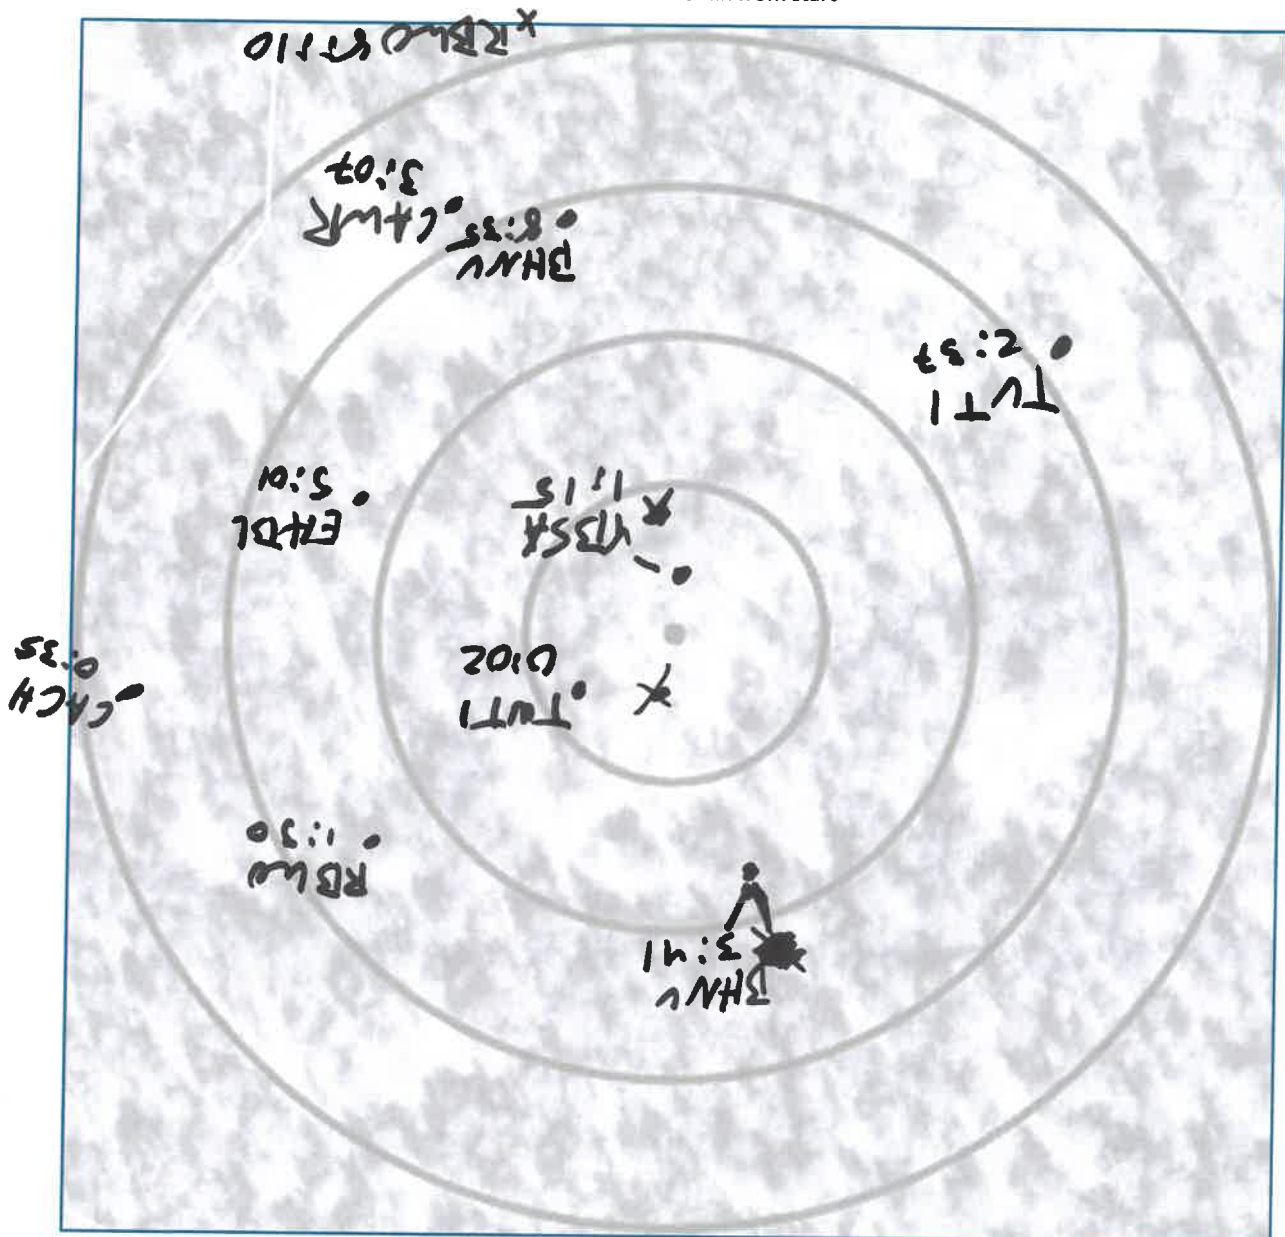 BHNU
3:41
RBWO
1:30
TUTI
0:02
CACH
0:35
YBSA
1:15
EABL
5:01
TUTI
2:37
BHNU
8:35
CAWR
3:07
RBWO